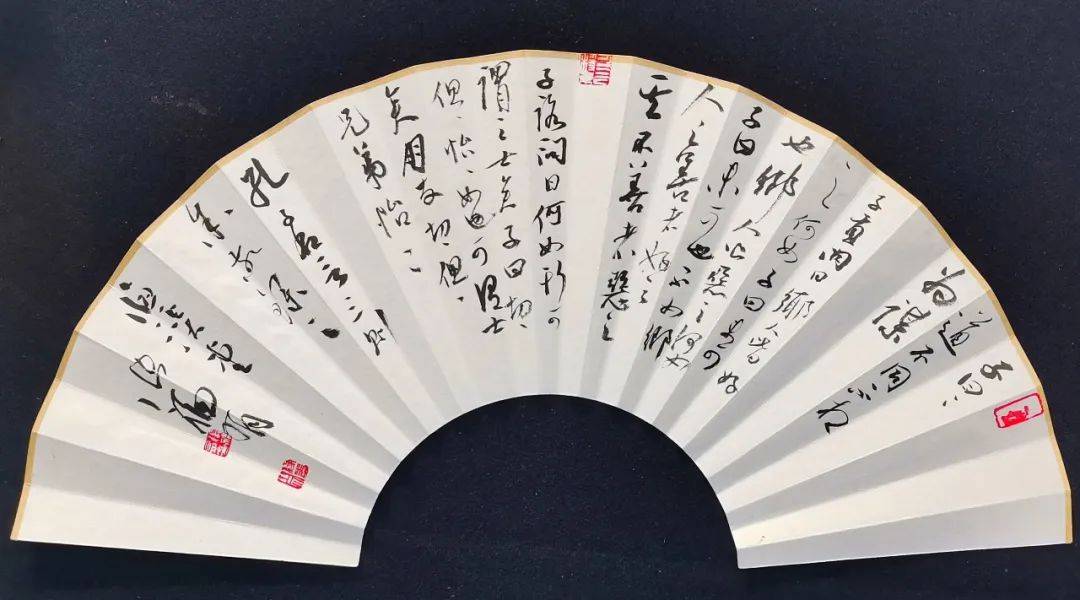 子曰
道不同不相
为谋
子貢问曰鄉人皆好
之何如子曰未可
也鄉人皆惡之何如
子曰未可也不如鄉
人之善者好之
其不善者惡之
子路问曰何如斯可
謂之士矣子曰切切
偲偲怡怡如也可謂士
矣朋友切切偲偲
兄弟怡怡
孔子名言二则